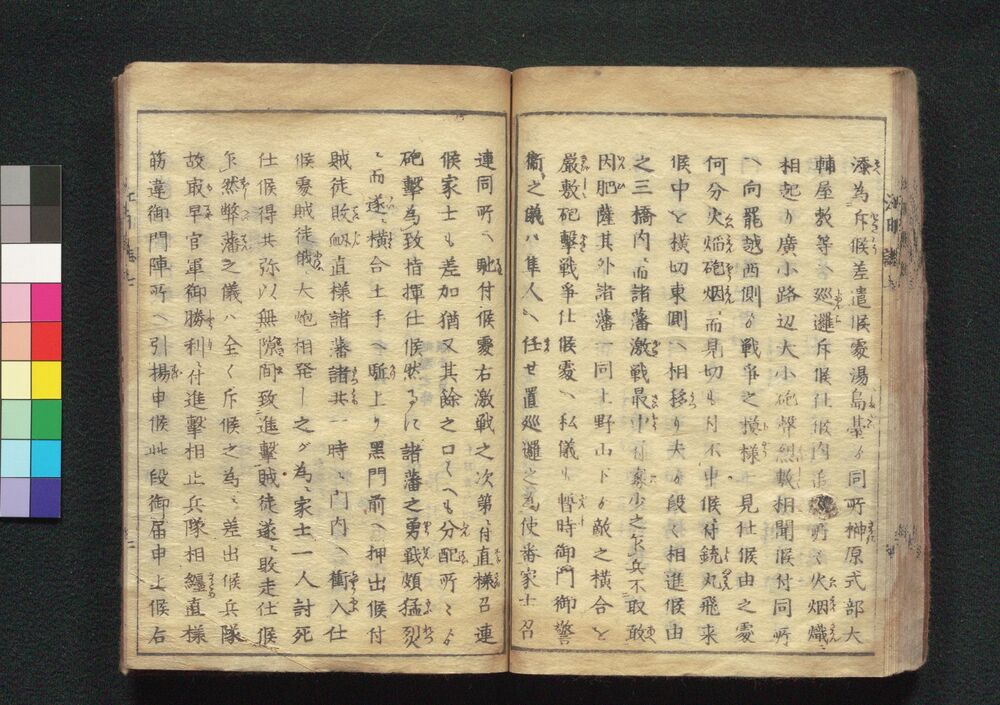 添為斥候差遣候処湯島基ゟ同所榊原式部大
輔屋敷等へ巡邏斥候仕候内追 所ゟ火烟熾
相起り廣小路辺大小砲聲烈敷相聞候付同所
へ向罷越西側ゟ戦争之模様一見仕候由之處
何分火焔砲烟ニ而見切も付不申候付銃丸飛来
候中を横切東側へ相移り夫ゟ段々相進候由
之三橋内ニ而諸藩激戦最中付寡少之乍兵不取敢
因肥薩其外諸藩一同上野山下ゟ敵之横合を
嚴敷砲撃戦争仕候處へ私儀も暫時御門御警
衛之儀ハ隼人へ任セ置巡邏之為使番家士召
連同所へ馳付候處右激戦之次第ニ付直様召連
候家士も差加猶又其餘之口々へも分配所々ゟ
砲撃為致指揮仕候然るに諸藩之勇戦頗猛烈
ニ而遂ニ横合土手へ駈上り黒門前へ押出候付
賊徒敗衂直様諸藩諸共一時ニ門内へ衝入仕
候處賊徒俄ニ大炮相発し之ガ為ニ家士一人討死
仕候得共弥以無隙間致進撃賊徒遂ニ敗走仕候
乍然弊藩之儀ハ全く斥候之為ニ差出候兵隊
故最早官軍御勝利ニ付進撃相止兵隊相纏直様
筋違御門陣所へ引揚申候此段御届申上候右